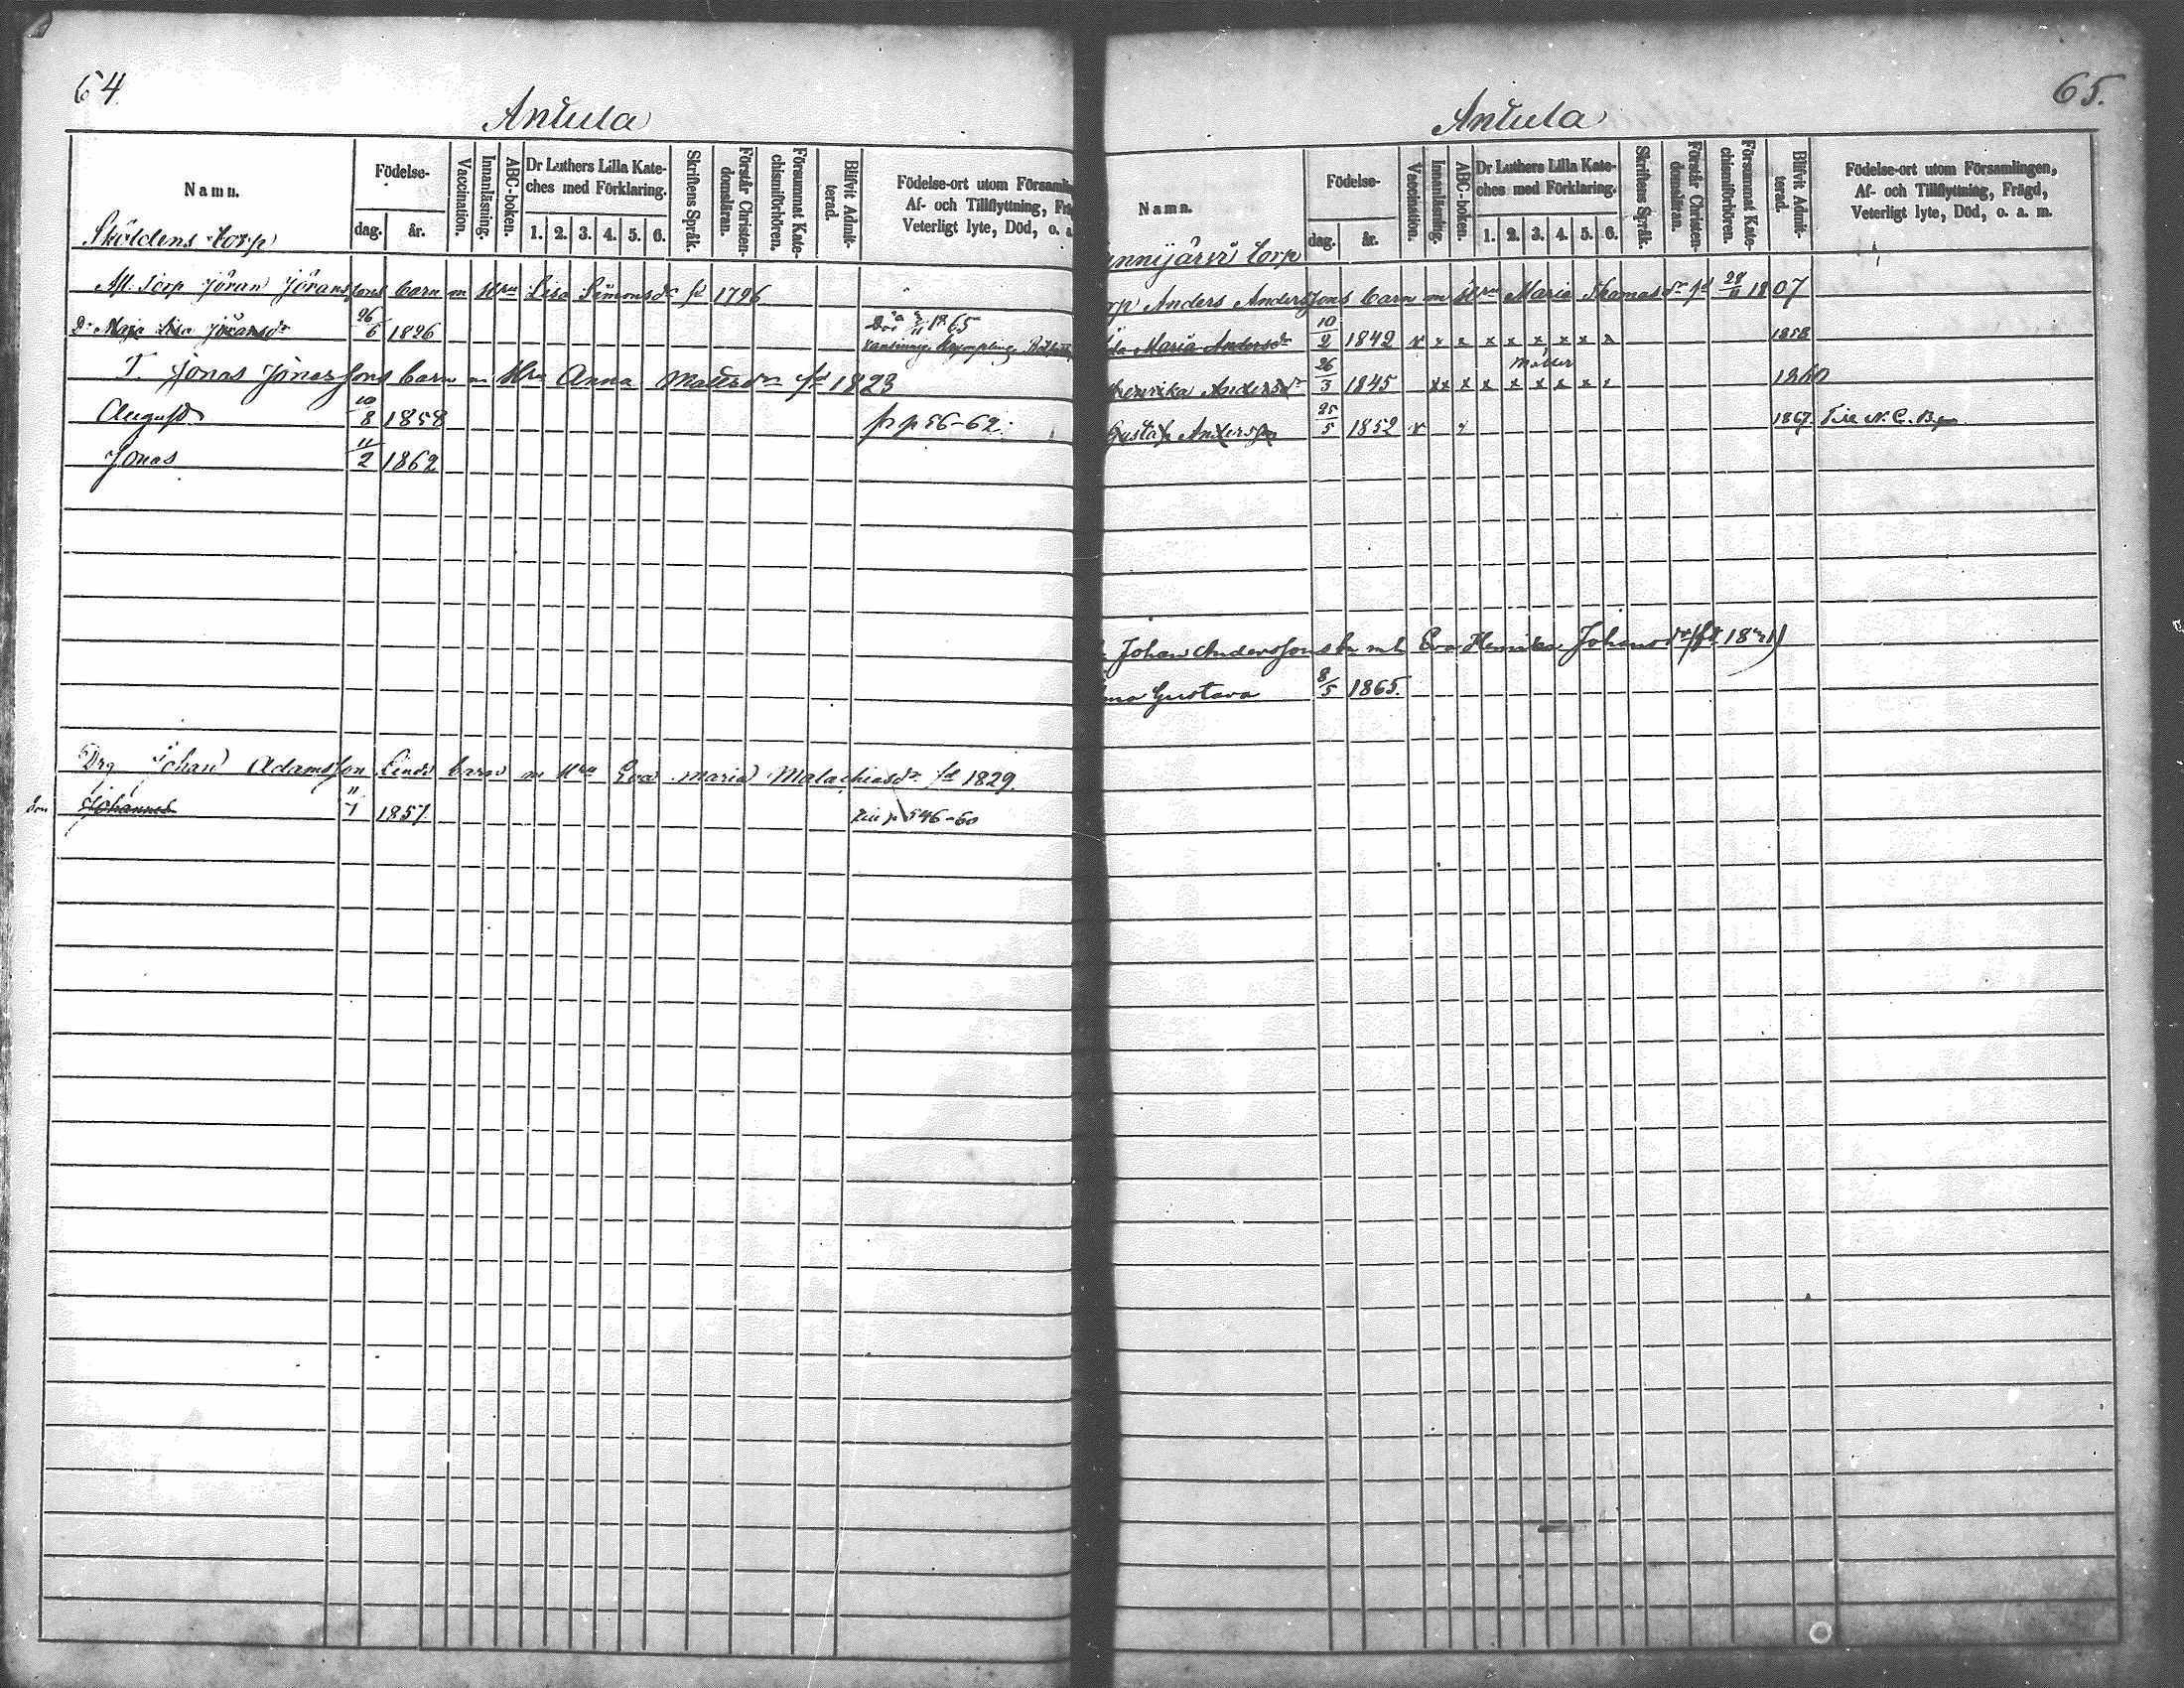 64.
Antula
Namn.
Födelse-
dag.
år.
Vaccination.
Innanläsning.
ABC-boken.
Dr Luthers Lilla Kate-
ches med Förklaring.
1. 2. 3. 4. 5. 6.
Skriftens Språk.
Förstår Christen-
domsläran.
Försummat Kate-
chismiförhören.
Blifvit Admit-
terad.
Födelse-ort utom Församlin
Af- och Tillflyttning, Frä
Veterligt lyte, Död, o. a.
Sköldens torp
Afl. Torp Jöran Jöranssons barn m Hru Lisa Simonsdr fd 1796
Dr Maja Lisa Jöransdr 26/6 1826 1865
T. Jonas Jonassons barn m Hru Anna Mattsdr fd 1823
August 10/8 1858 fr p 56-62.
Jonas 11/2 1862
Drg Johan Adamsson Lindb barn m Hru Eva Maria Malachiasdr fd 1829.
Son Johannes 11/7 1857. p 546-60
65.
Antula
Namn.
Födelse-
dag.
år.
Vaccination.
Innanläsning.
ABC-boken.
Dr Luthers Lilla Kate-
ches med Förklaring.
1. 2. 3. 4. 5. 6.
Skriftens Språk.
Förstår Christen-
domsläran.
Försummat Kate-
chismiförhören.
Blifvit Admit-
terad.
Födelse-ort utom Församlingen,
Af- och Tillflyttning, Frägd,
Veterligt lyte, Död, o. a. m.
nnijärvi torp
rp Anders Anderssons barn m Hru Maria Thomasdr fd 28/11 1807
Maria Andersdr 10/2 1842 x x x x x x x x x 1858
Henrika Andersdr 26/3 1845 xx x x x x x x x 1860
Gustaf Andersson 25/5 1852 x x 1867.
Johan Anderssons bn m h Eva Henrika Johansdr (fd 1841)
na Gustava 8/5 1865.